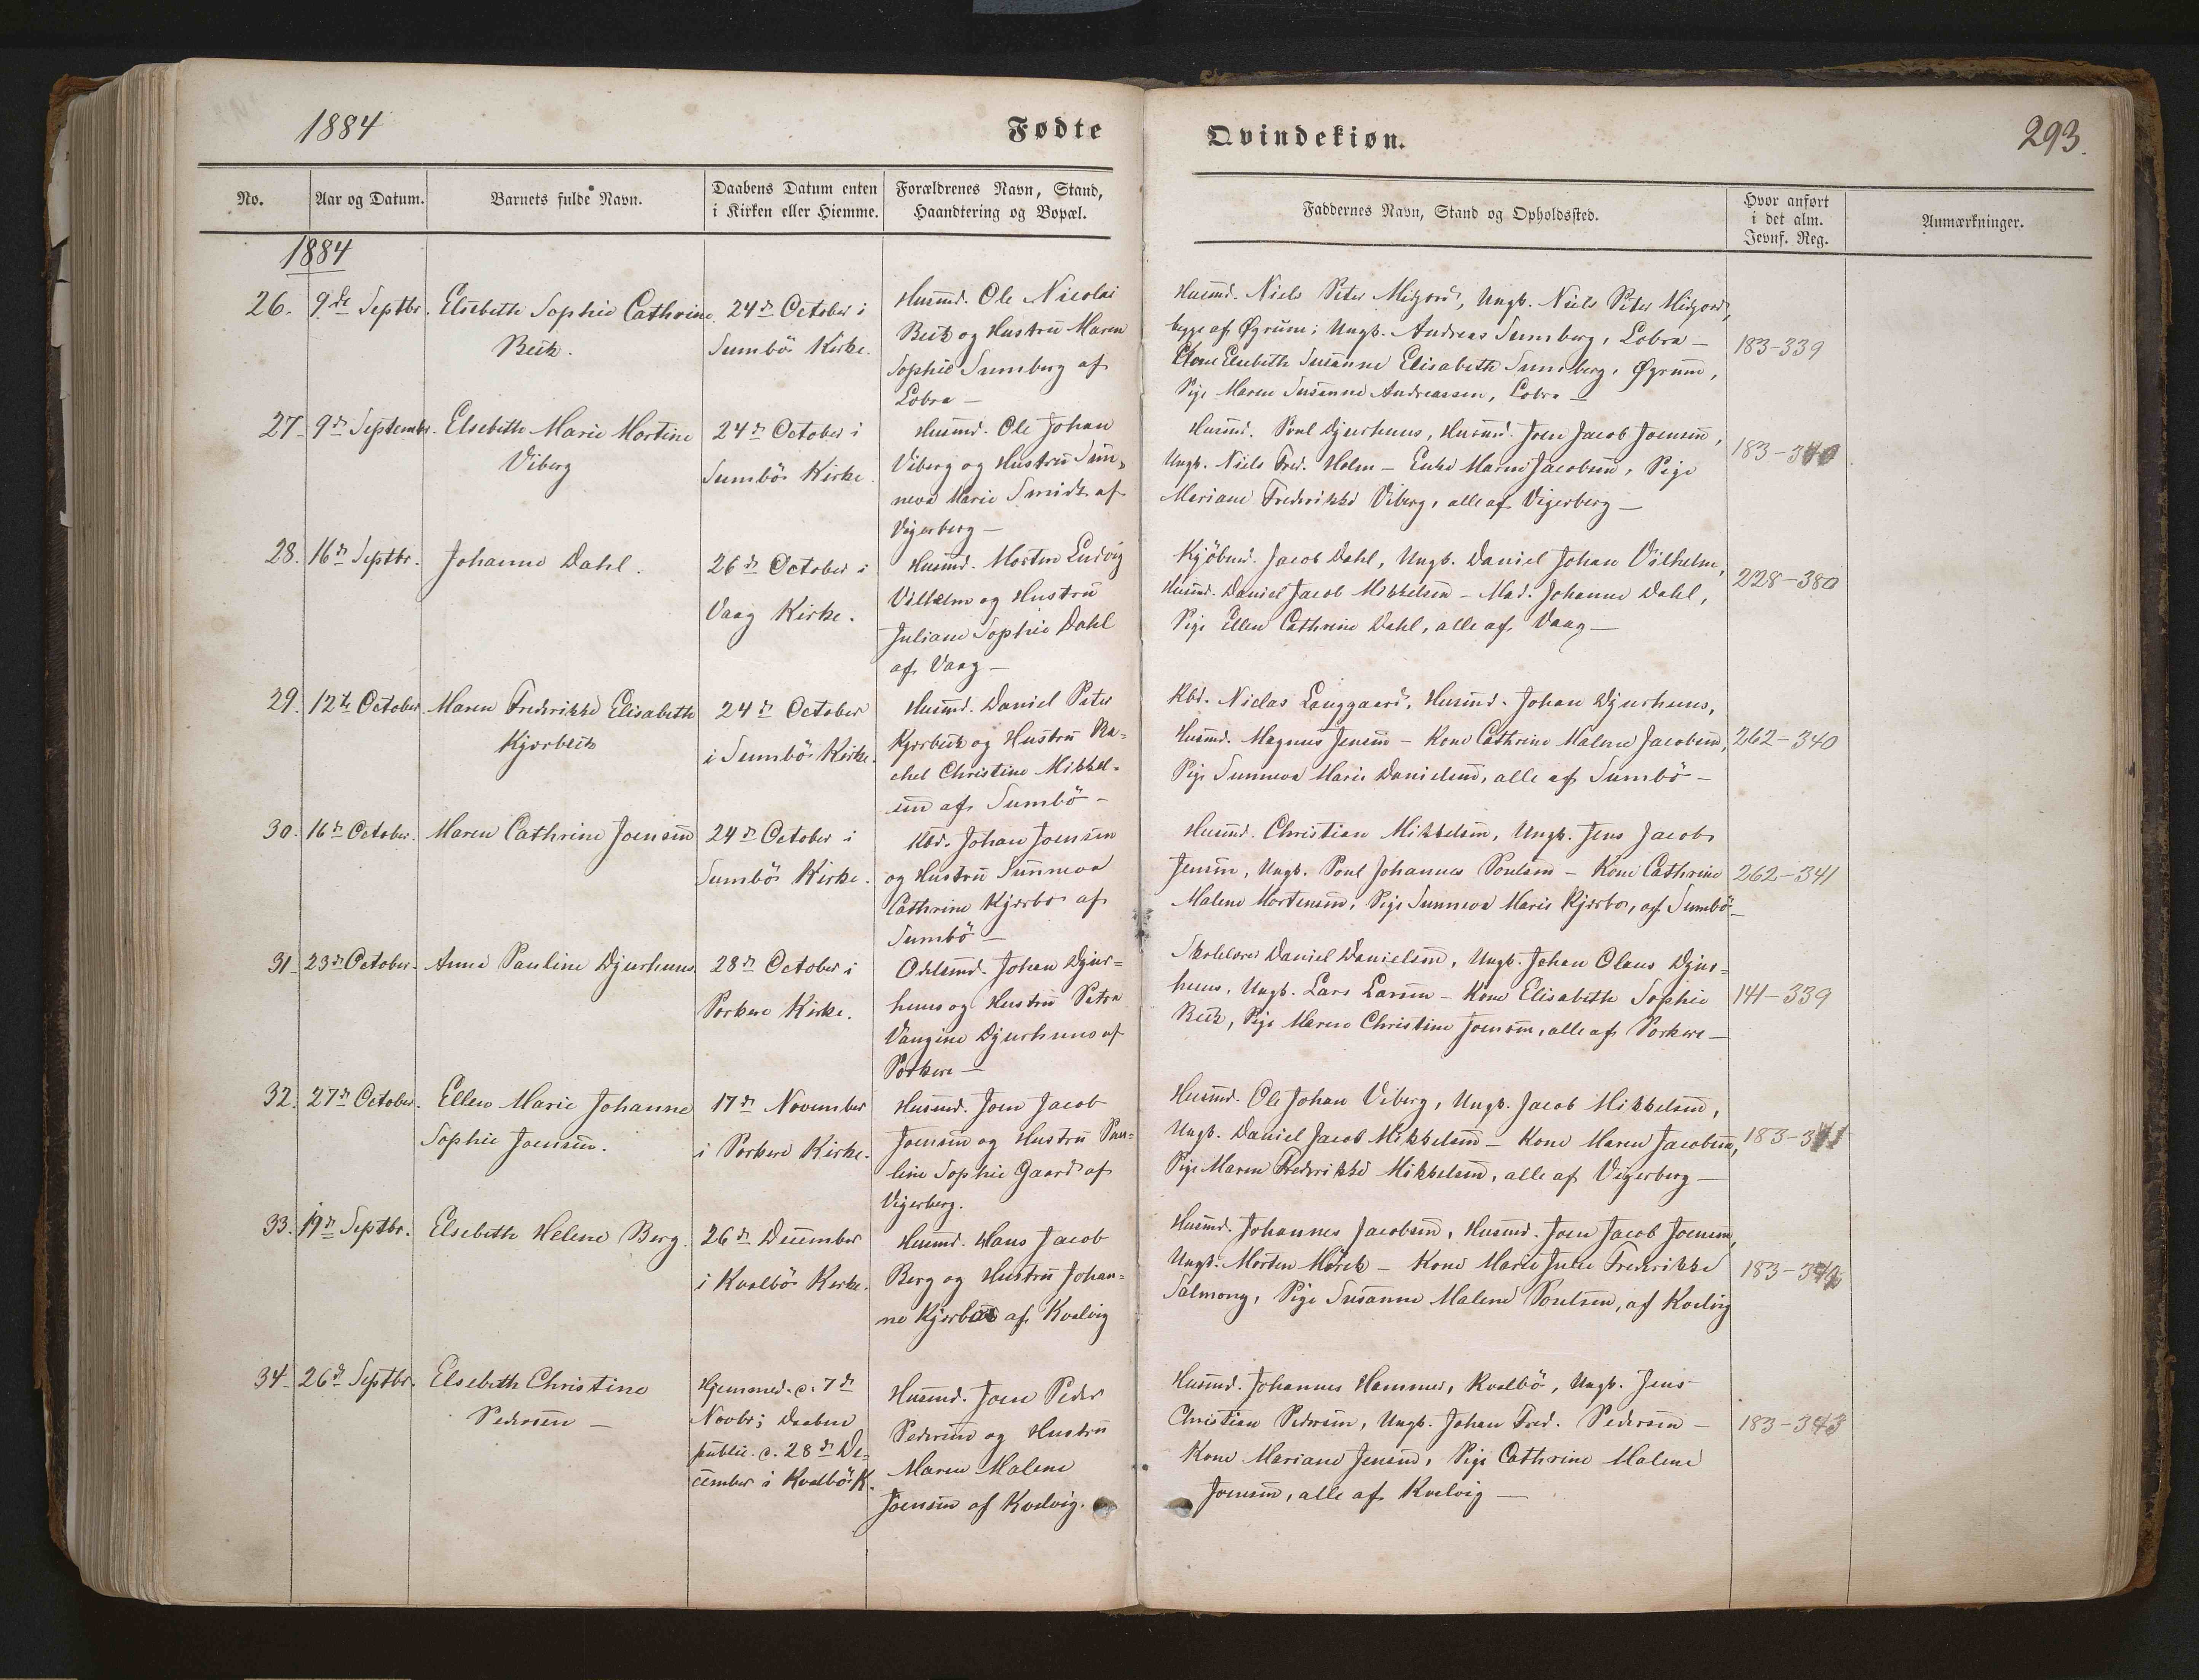 1884
Fødte
No.
Aar og Datum.
Barnets fulde Navn.
Daabens Datum enten
i Kirken eller Hiemme.
Forældrenes Navn, Stand,
Haandtering og Bopæl.
1884
26. 9de Septbr. Elsebeth Sophie Cathrine
Beck.
24de October i
Sumbö Kirke.
Husmd. Ole Nicolai
Beck og Hustru Maren
Sophie Sumberg af
Lobra —
27. 9de Septembr. Elsebeth Marie Mortine
Viberg
24de October i
Sumbö Kirke.
Husmd. Ole Johan
Viberg og Hustru Sun-
neva Marie Smidt af
Vigerberg —
28. 16de Septbr. Johanne Dahl.
26de October i
Vaag Kirke.
Husmd. Morten Ludvig
Vilhelm og Hustru
Juliane Sophie Dahl
af Vaag —
29. 12te October Maren Frederikke Elisabeth
Kjærbeck
24de October
i Sumbö Kirke.
Husmd. Daniel Peter
Kjærbeck og Hustru Ra=
chel Christine Mikkel-
sen af Sumbö —
30. 16de October. Maren Cathrine Joensen
24de October i
Sumbö Kirke.
Kbd. Johan Joensen
og Hustru Sunneva
Cathrine Kjærbo af
Sumbö —
31. 23de October. Anne Pauline Djurhuus
28de October i
Porkere Kirke.
Odelsmd. Johan Djur=
huus og Hustru Petra
Vangine Djurhuus af
Porkere —
32. 27de October. Ellen Marie Johanne
Sophie Joensen.
17de November
i Porkere Kirke.
Husmd. Joen Jacob
Joensen og Hustru Pau=
line Sophie Gaard af
Vigerberg.
33. 19de Septbr. Elsebeth Helene Berg.
26de December
i Kvalbö Kirke.
Husmd. Hans Jacob
Berg og Hustru Johan=
ne af Kvalvig
34. 26de Septbr. Elsebeth Christine
Pedersen —
Hjemmed. c. 7de
Novbr; Daaben
public. c. 28de De=
cember i Kvalbö K.
Husmd. Joen Peder
Pedersen og Hustru
Maren Malene
Joensen af Kvalvig.
Qvindekiøn.
293.
Faddernes Navn, Stand og Opholdssted.
Hvor anført
i det alm.
Jevnf. Reg.
Anmærkninger.
Husmd. Niels Peter Midjord, Ungk. Niels Peter Midjord,
begge af Øgrum; Ungk. Andreas Sumberg, Lobra —
Kone Elsebeth Susanne Elisabeth Sumberg, Øgrum,
Pige Maren Susanne Andreassen, Lobra —
183-339
Husmd. Poul Djurhuus, Husmd. Joen Jacob Joensen,
Ungk. Niels Fred. Holm — Enke Maren Jacobsen, Pige
Mariane Frederikke Viberg, alle af Vigerberg —
183-340
Kjöbmd. Jacob Dahl, Ungk. Daniel Johan Vilhelm,
Husmd. Daniel Jacob Mikkelsen — Mad. Johanne Dahl,
Pige Ellen Cathrine Dahl, alle af Vaag —
228-380
Kbd. Niclas Langgaard, Husmd. Johan Djurhuus,
Husmd. Magnus Jensen — Kone Cathrine Malene Jacobsen,
Pige Sunneva Marie Danielsen, alle af Sumbö —
262-340
Husmd. Christian Mikkelsen, Ungk. Jens Jacob
Jensen, Ungk. Poul Johannes Poulsen — Kone Cathrine
Malene Mortensen, Pige Sunneva Marie Kjærbo, af Sumbö —
262-341
Skolelærer Daniel Danielsen, Ungk. Johan Olaus Djur=
huus, Ungk. Lars Larsen — Kone Elisabeth Sophie
Beck, Pige Maren Christine Joensen, alle af Porkere —
141-339
Husmd. Ole Johan Viberg, Ungk. Jacob Mikkelsen,
Ungk. Daniel Jacob Mikkelsen — Kone Maren Jacobsen,
Pige Maren Frederikke Mikkelsen, alle af Vigerberg —
183-341
Husmd. Johannes Jacobsen, Husmd. Joen Jacob Joensen,
Ungk. Morten Mörck — Kone Marie Julie Frederikke
Salmony, Pige Susanne Malene Poulsen, af Kvalvig
Husmd. Johannes Hammer, Kvalbö, Ungk. Jens
Christian Pedersen, Ungk. Johan Fred. Pedersen —
Kone Mariane Jensen, Pige Cathrine Malene
Joensen, alle af Kvalvig —
183-343